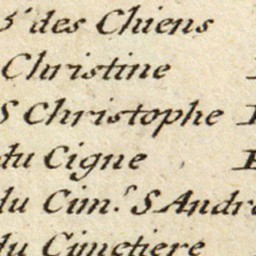 des Chiens
Christine
S Christophe
du Cigne
du Cim.^s S André
du Cimetiere